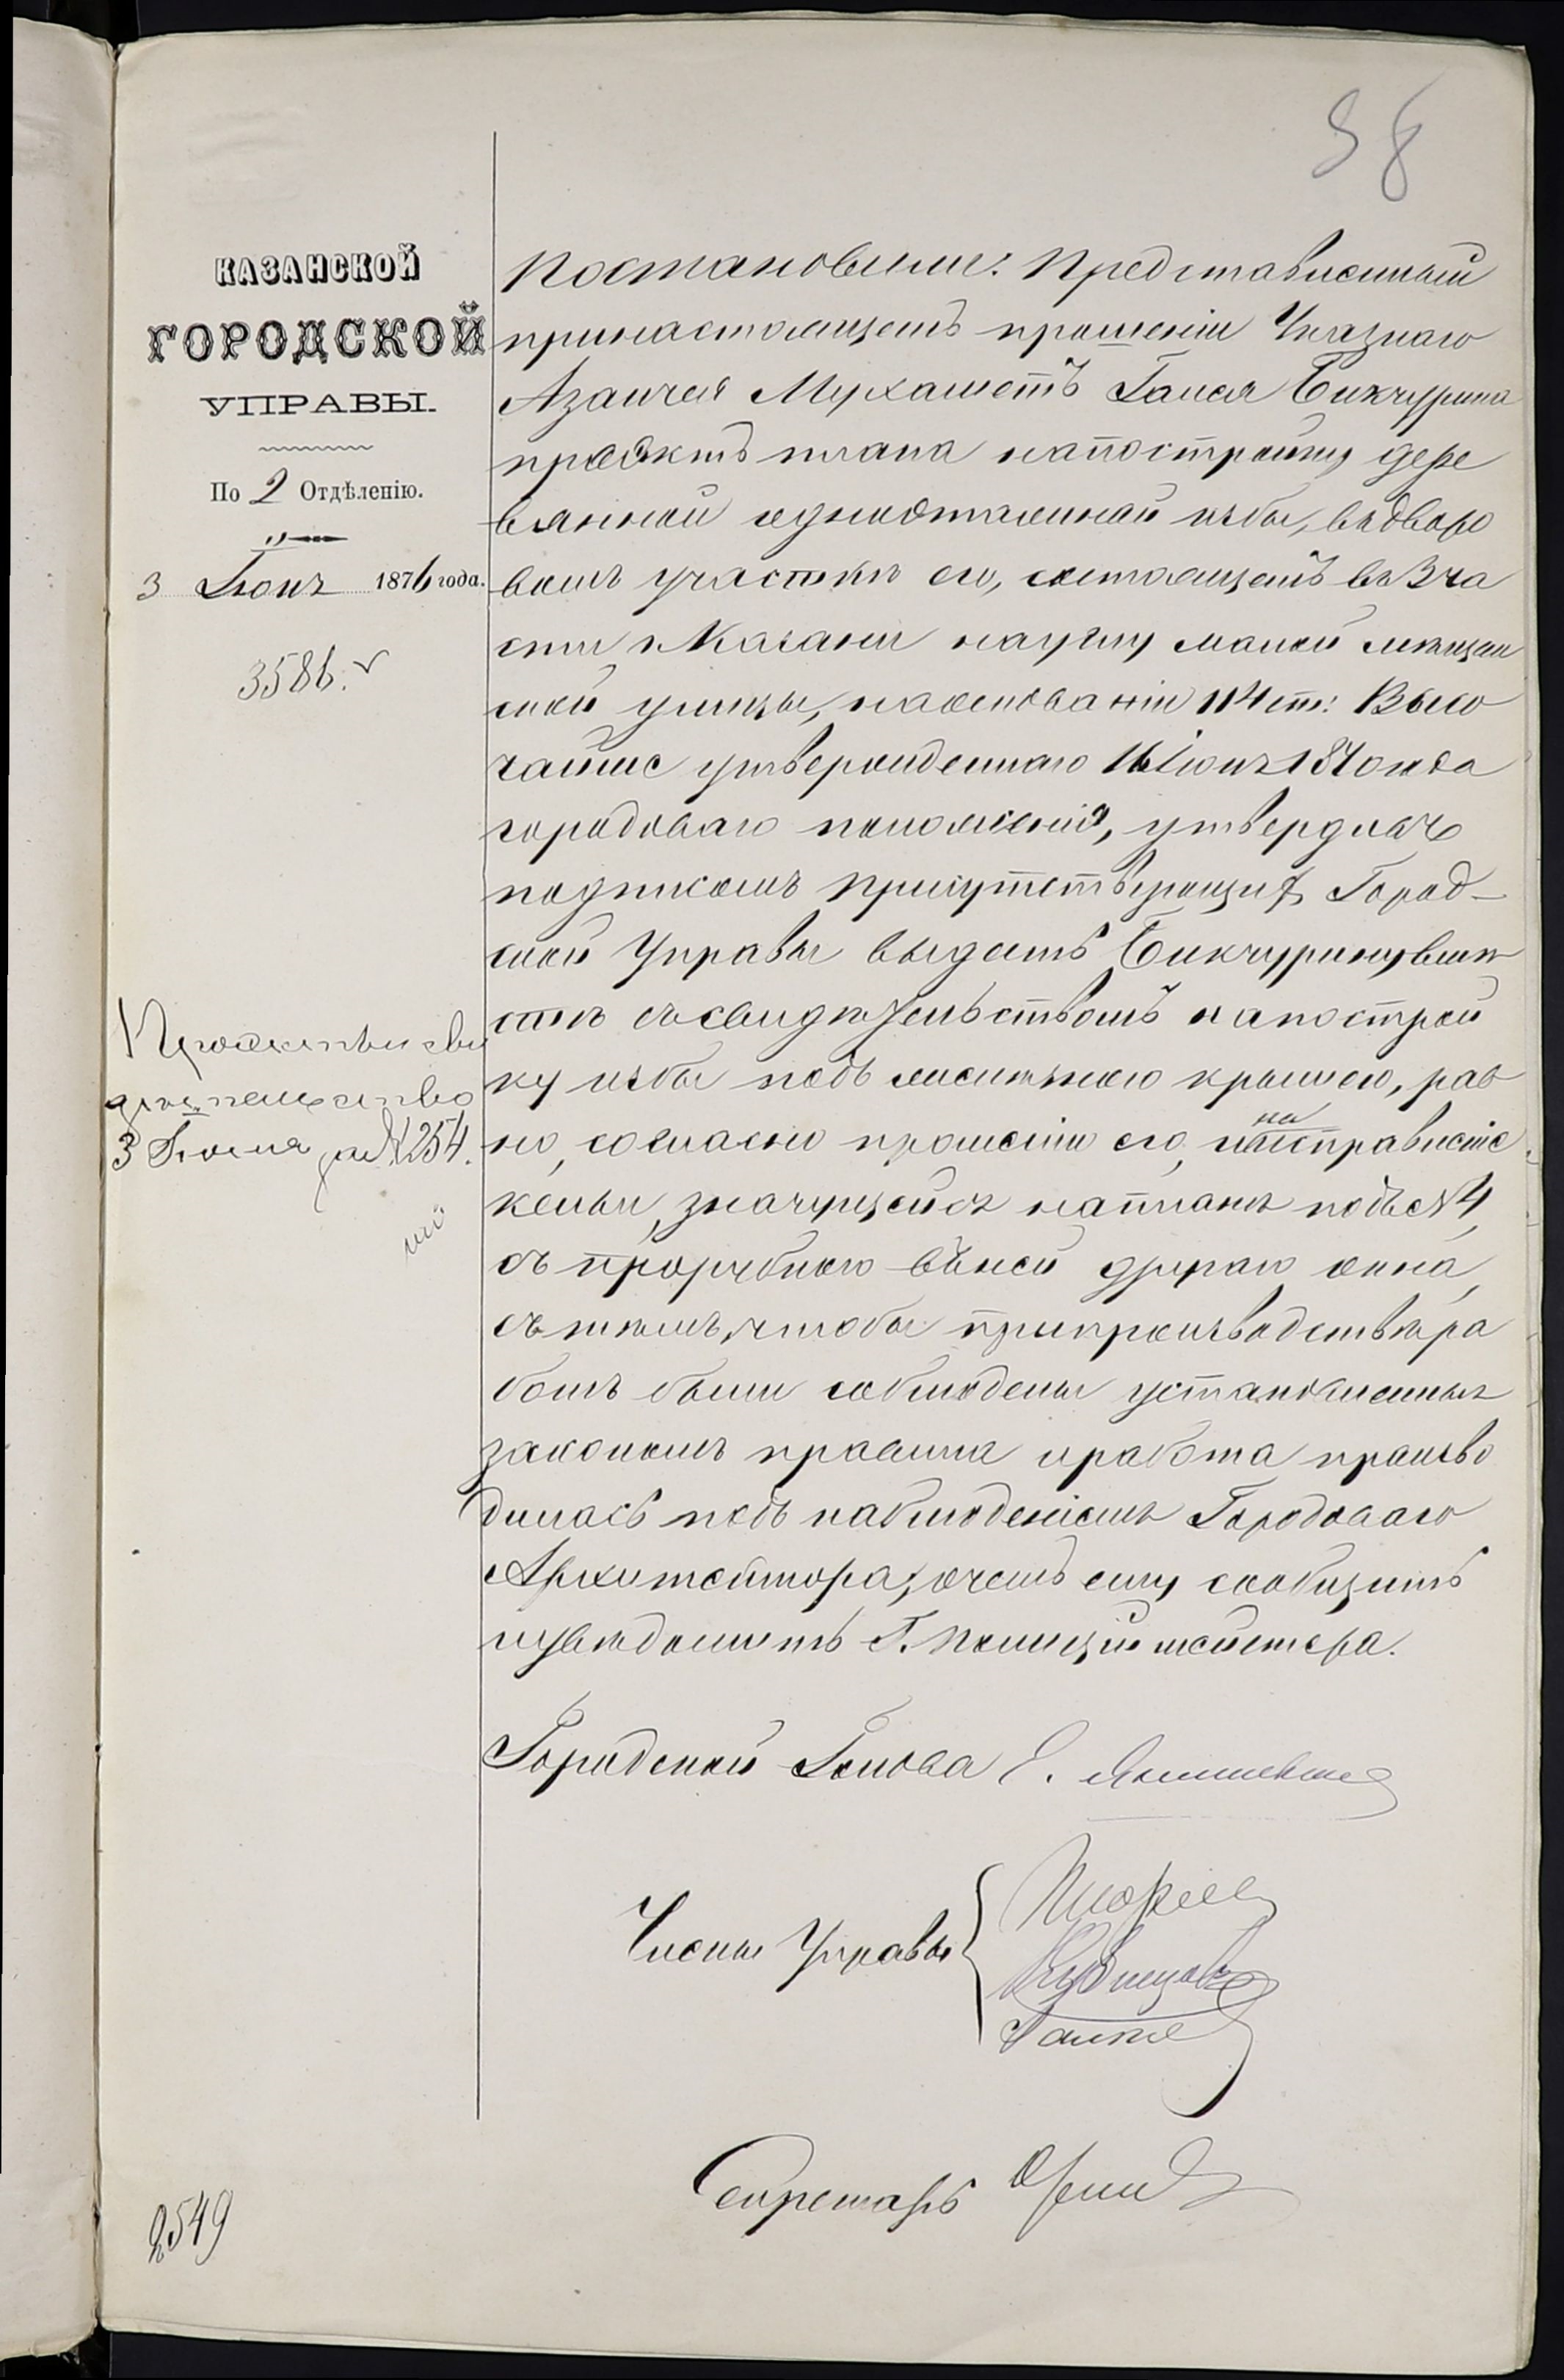 58
КАЗАНСКОЙ
ГОРОДСКОЙ
УПРАВЫ.
По 2 Отдѣленію.
3 Іюня 1876 года.
3586.
Проэктъ и сви
дѣтельство
3 Іюня за № 254.
Постановленіе: Представленный
при настоящемъ прошеніи Указнаго
Азанчея Мухаметъ Галея Бикчурина
проэктъ плана на постройку дере
вянной одноэтажной избы, въ дворо
вомъ участкѣ его, состоящемъ въ 3 ча
сти г. Казани на углу малой мѣщан
ской улицы, на основаніи 114 ст: Высо
чайше утвержденнаго 16 Іюня 1870 года
городоваго положенія, утвердивъ
подписомъ присутствующихъ Город-
ской Управы выдать Бикчурину вмѣ
стѣ съ свидѣтельствомъ на построй
ку избы подъ желѣзною крышею, рав
но, согласно прошенію его, на исправленіе
кельи, значущейся на планѣ подъ № 4,
съ прорубкою въ ней другаго окна,
съ тѣмъ, чтобы при производствѣ ра
ботъ были соблюдены установленныя
закономъ правила и работа произво
дилась подъ наблюденіемъ Городоваго
Архитектора, о чемъ ему сообщить
и увѣдомить Г. Полиціймейстера.
Городской Голова Е. Янишевскій
Члены Управы
Кузнецовъ
Секретарь
2549